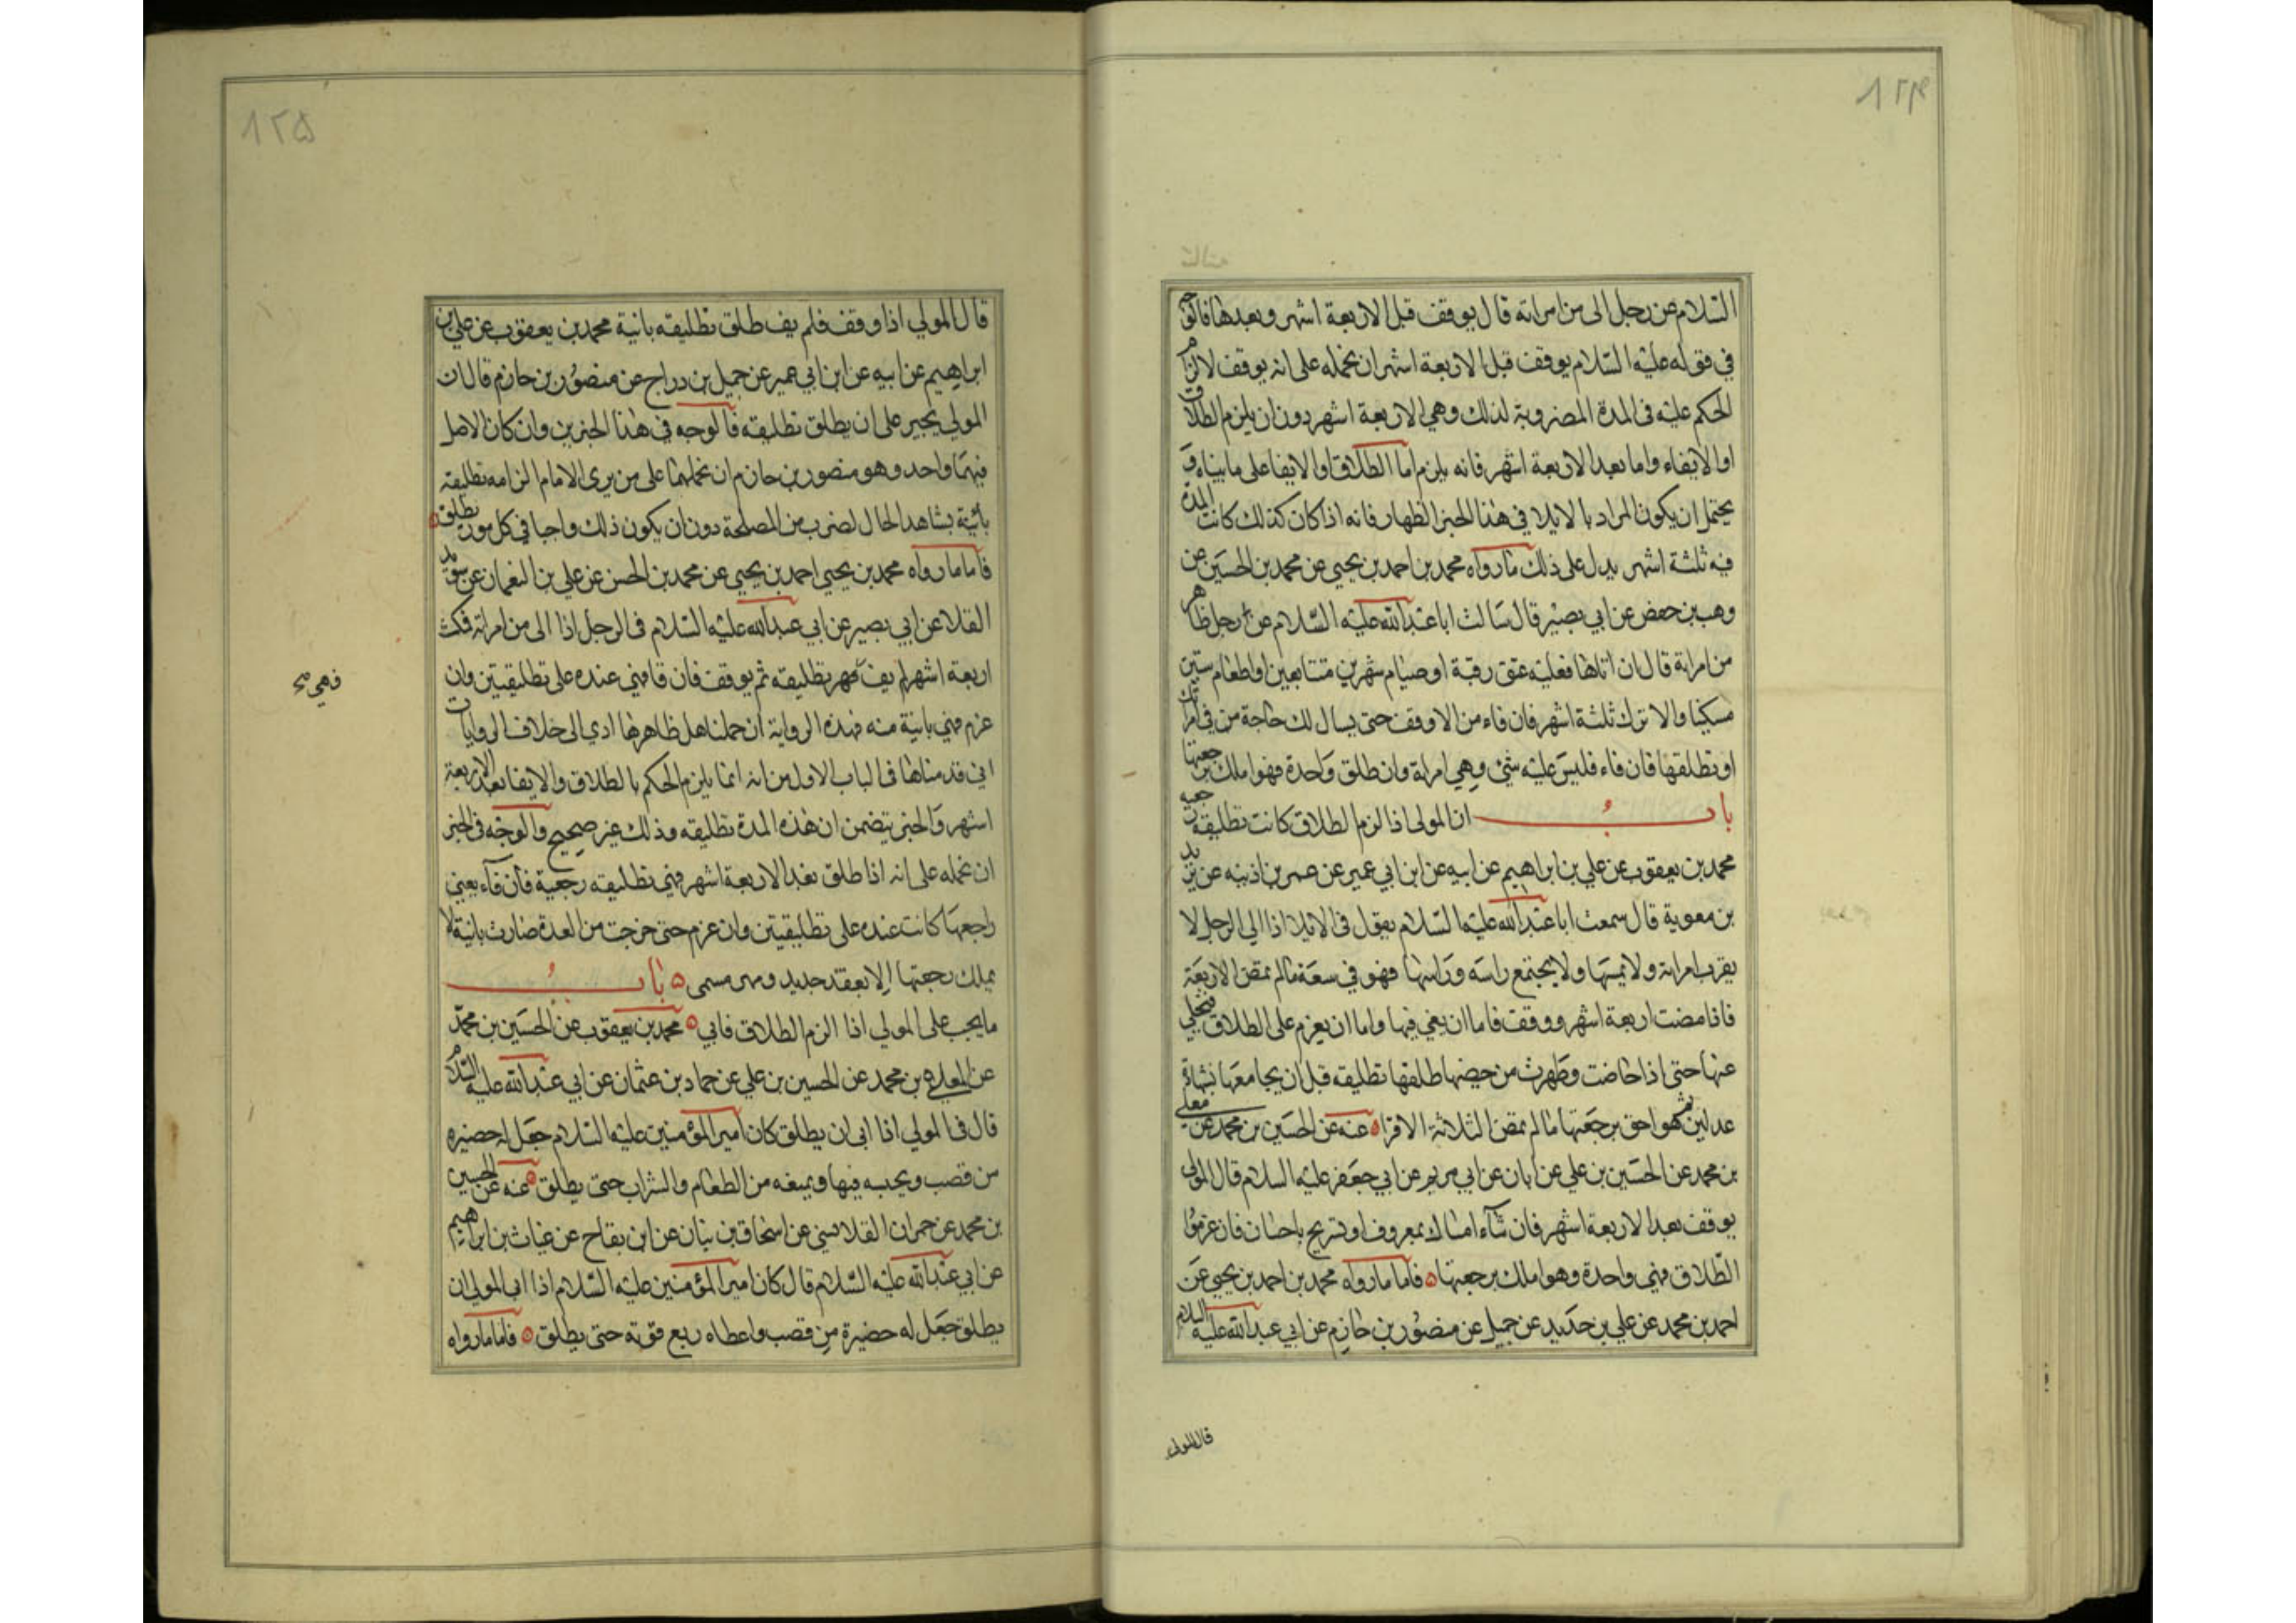 ١٢٤
السلام عن رجل الى من امراته قال يوقف قبل الاربعة اشهر وبعدها فالوجه
في قوله عليه السلام يوقف قبل الاربعة اشهر ان نحمله على انه يوقف لالزام
الحكم عليه فى المدة المضروبة لذلك وهي الاربعة اشهر دون ان يلزم الطلاق
او الايفاء واما بعد الاربعة اشهر فانه يلزم اما الطلاق او الايفا على ما بيناه و
يحتمل ان يكون المراد بالايلا في هذا الخبر الظهار فانه اذا كان كذلك كانت المدة
فيه ثلثة اشهر يدل على ذلك ما رواه محمد بن احمد بن يحيى عن محمد بن الحسين عن
وهب بن حفص عن ابي بصير قال سالت ابا عبد الله عليه السلام عن رجل ظاهر
من امراته قال ان اتاها فعليه عتق رقبة او صيام شهرين متتابعين او اطعام ستين
مسكينا والا ترك ثلثة اشهر فان فاء من الا وقف حتى يسال لك حاجة من في امراتك
او تطلقها فان فاء فليس عليه شئ وهي امراته وان طلق واحدة فهو املك برجعتها
باب ان المولى اذا لزم الطلاق كانت تطليقة رجعيه
محمد بن يعقوب عن علي بن ابراهيم عن ابيه عن ابن ابي عمير عن عمر بن اذينه عن بريد
بن معوية قال سمعت ابا عبد الله عليه السلام يقول فى الايلا اذا الى الرجل لا
يقرب امراته ولا يمسها ولا يجتمع راسه وراسها فهو في سعة ما لم تمض الاربعة
فاذا مضت اربعة اشهر ووقف فاما ان يفي فيها واما ان يعزم على الطلاق فيخلي
عنها حتى اذا حاضت وطهرت من حيضها طلقها تطليقه قبل ان يجامعها بشهادة
عدلين ثم هو احق برجعتها ما لم تمض الثلاثة الاقراء عنه عن الحسين بن محمد عن معلى
بن محمد عن الحسين بن علي عن ابان عن ابي مريم عن ابي جعفر عليه السلام قال المولى
يوقف بعد الاربعة اشهر فان شآء امساك بمعروف او تسريح باحسان فان عزموا
الطلاق فهي واحدة وهو املك برجعتها فاما ما رواه محمد بن احمد بن يحيى عن
احمد بن محمد عن علي بن حديد عن جميل عن منصور بن حازم عن ابي عبد الله عليه السلام
قال المولى
١٢٥
قال المولي اذا وقف فلم يف طلق تطليقه بانية محمد بن يعقوب عن علي بن
ابراهيم عن ابيه عن ابن ابي عمير عن جميل بن دراج عن منصور بن حازم قال ان
المولي يجبر على ان يطلق تطليقه فالوجه في هذا الخبرين وان كان الاصل
فيهما واحد وهو منصور بن حازم ان نحملهما على من يرى الامام الزامه تطليقه
بائنة بشاهد الحال لضرب من المصلحة دون ان يكون ذلك واجبا في كل مورد تطلق
فاما ما رواه محمد بن يحيى احمد بن يحيى عن محمد بن الحسن عن علي بن النعمان عن سويد
القلا عن ابي بصير عن ابي عبد الله عليه السلام فى الرجل اذا الى من امراته فمكث
اربعة اشهر لم يف فهي تطليقه ثم يوقف فان فا فهي عنده على تطليقتين وان
فهي صح
عزم فهي بانية منه فهذه الرواية ان حملناها على ظاهرها ادي الى خلاف الروايات
اني قدمناها فى الباب الاول من انه انما يلزم الحكم بالطلاق والايفا بعد الاربعة
اشهر والخبر يتضمن ان هذه المدة تطليقه وذلك غير صحيح والوجه فى الخبر
ان نحمله على انه اذا طلق بعد الاربعة اشهر فهي تطليقه رجعية فان فآء يعني
راجعها كانت عنده على تطليقتين وان عزم حتى خرجت من العدة صارت بانية لا
يملك رجعتها الا بعقد جديد ومهر مسمى باب
ما يجب على المولي اذا الزم الطلاق فابي محمد بن يعقوب عن الحسين بن محمد
عن المعلى بن محمد عن الحسين بن علي عن حماد بن عثمان عن ابي عبد الله عليه السلام
قال فى المولي اذا ابى ان يطلق كان امير المؤمنين عليه السلام جعل له حضيره
من قصب ويحبسه فيها ويمنعه من الطعام والشراب حتى يطلق عنه عن الحسين
بن محمد عن حمران القلانسي عن اسحاق بن بنان عن ابن بقاح عن غياث بن ابراهيم
عن ابي عبد الله عليه السلام قال كان امير المؤمنين عليه السلام اذا ابى المولى ان
يطلق جعل له حضيرة من قصب واعطاه ربع قوته حتى يطلق فاما ما رواه